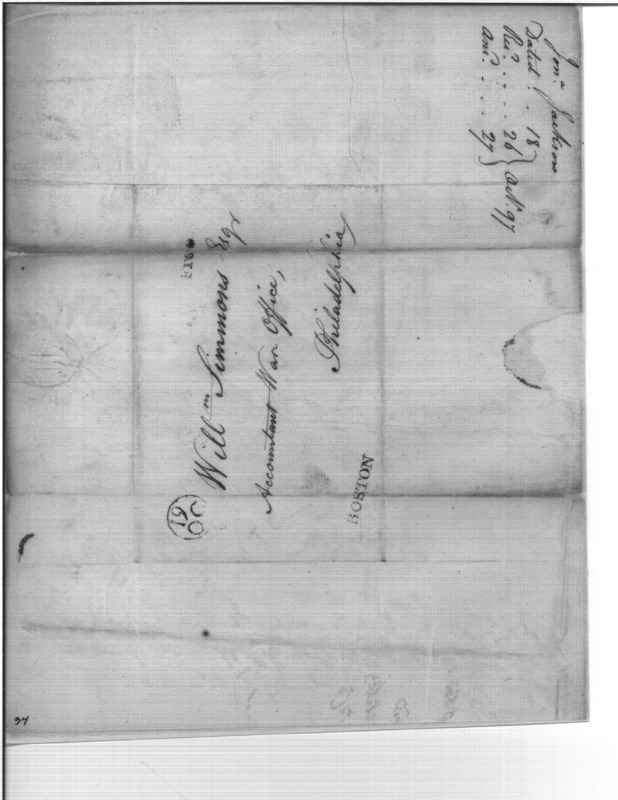 Jon.a Jackson
Dated . . 18
Rec.d . . . . 26 } Oct. 97
Ans.d . . . . 27
FREE
Will.m Simmons Esqr
Accountant War Office,
Philadelphia
BOSTON
19
OC
34